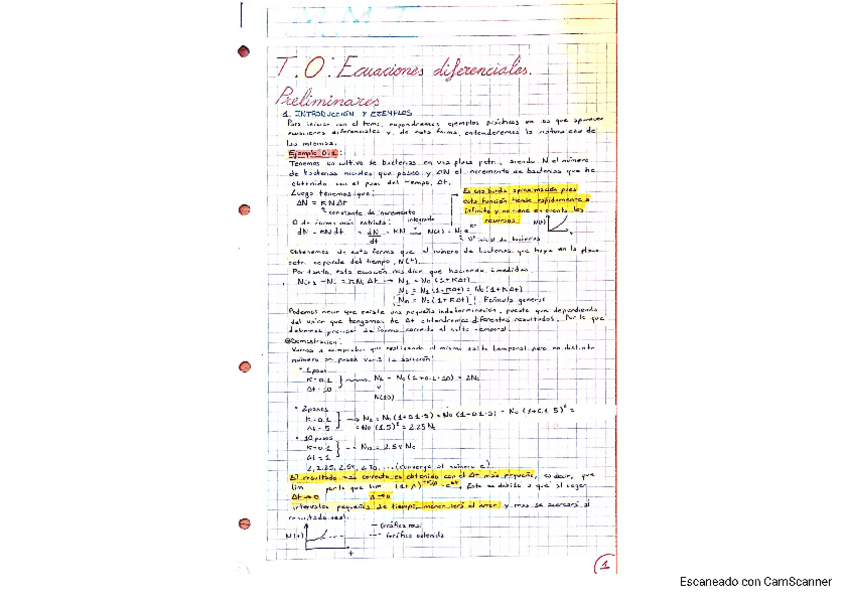 T.0: Ecuaciones diferenciales.
Preliminares
1. INTRODUCCIÓN Y EJEMPLOS
Para iniciar con el tema, expondremos ejemplos prácticos en los que aparecen
ecuaciones diferenciales y, de esta forma, entenderemos la naturaleza de
las mismas.
Ejemplo 0.1:
Tenemos un cultivo de bacterias en una placa petri, siendo N el número
de bacterias iniciales que posee y ΔN el incremento de bacterias que he
obtenido con el paso del tiempo, Δt.
Luego tenemos que:
ΔN = K N Δt
constante de incremento
Es una burda aproximación pues
esta función tiende rapidamente a
infinito y no tiene en cuenta los
recursos.
N(t)
O de forma más estricta:
integrando
dN = KN dt
dN/dt = KN
Nº inicial de bacterias
Obtenemos de esta forma que el número de bacterias que haya en la placa
petri depende del tiempo, N(t).
Por tanto, esta ecuación nos dice que haciendo medidas
N1 = N0 (1+KΔt)
Fórmula general
Podemos tener que existe una pequeña indeterminación, puesto que dependiendo
del valor que tengamos de Δt obtendremos diferentes resultados. Por lo que
debemos precisar de forma correcta el salto temporal.
Demostración:
Vamos a comprobar que realizando el mismo salto temporal pero en distinto
número de pasos varía la solución:
• 1 paso
K=0.1
Δt=10
N1 = N0 (1+0.1·10) = 2N0
N(10)
• 2 pasos
K=0.1
Δt=5
= N0 (1.5)² = 2.25 N0
• 10 pasos
K=0.1
Δt=1
(converge al número e)
El resultado más correcto es obtenido con el Δt más pequeño, es decir, que
lim por lo que lim
Δt→0
Esto es debido a que al coger
intervalos pequeños de tiempo, menor será el error y mas se acercará al
resultado real.
N(t)
t
— Gráfica real
--- Gráfica obtenida
1
Escaneado con CamScanner